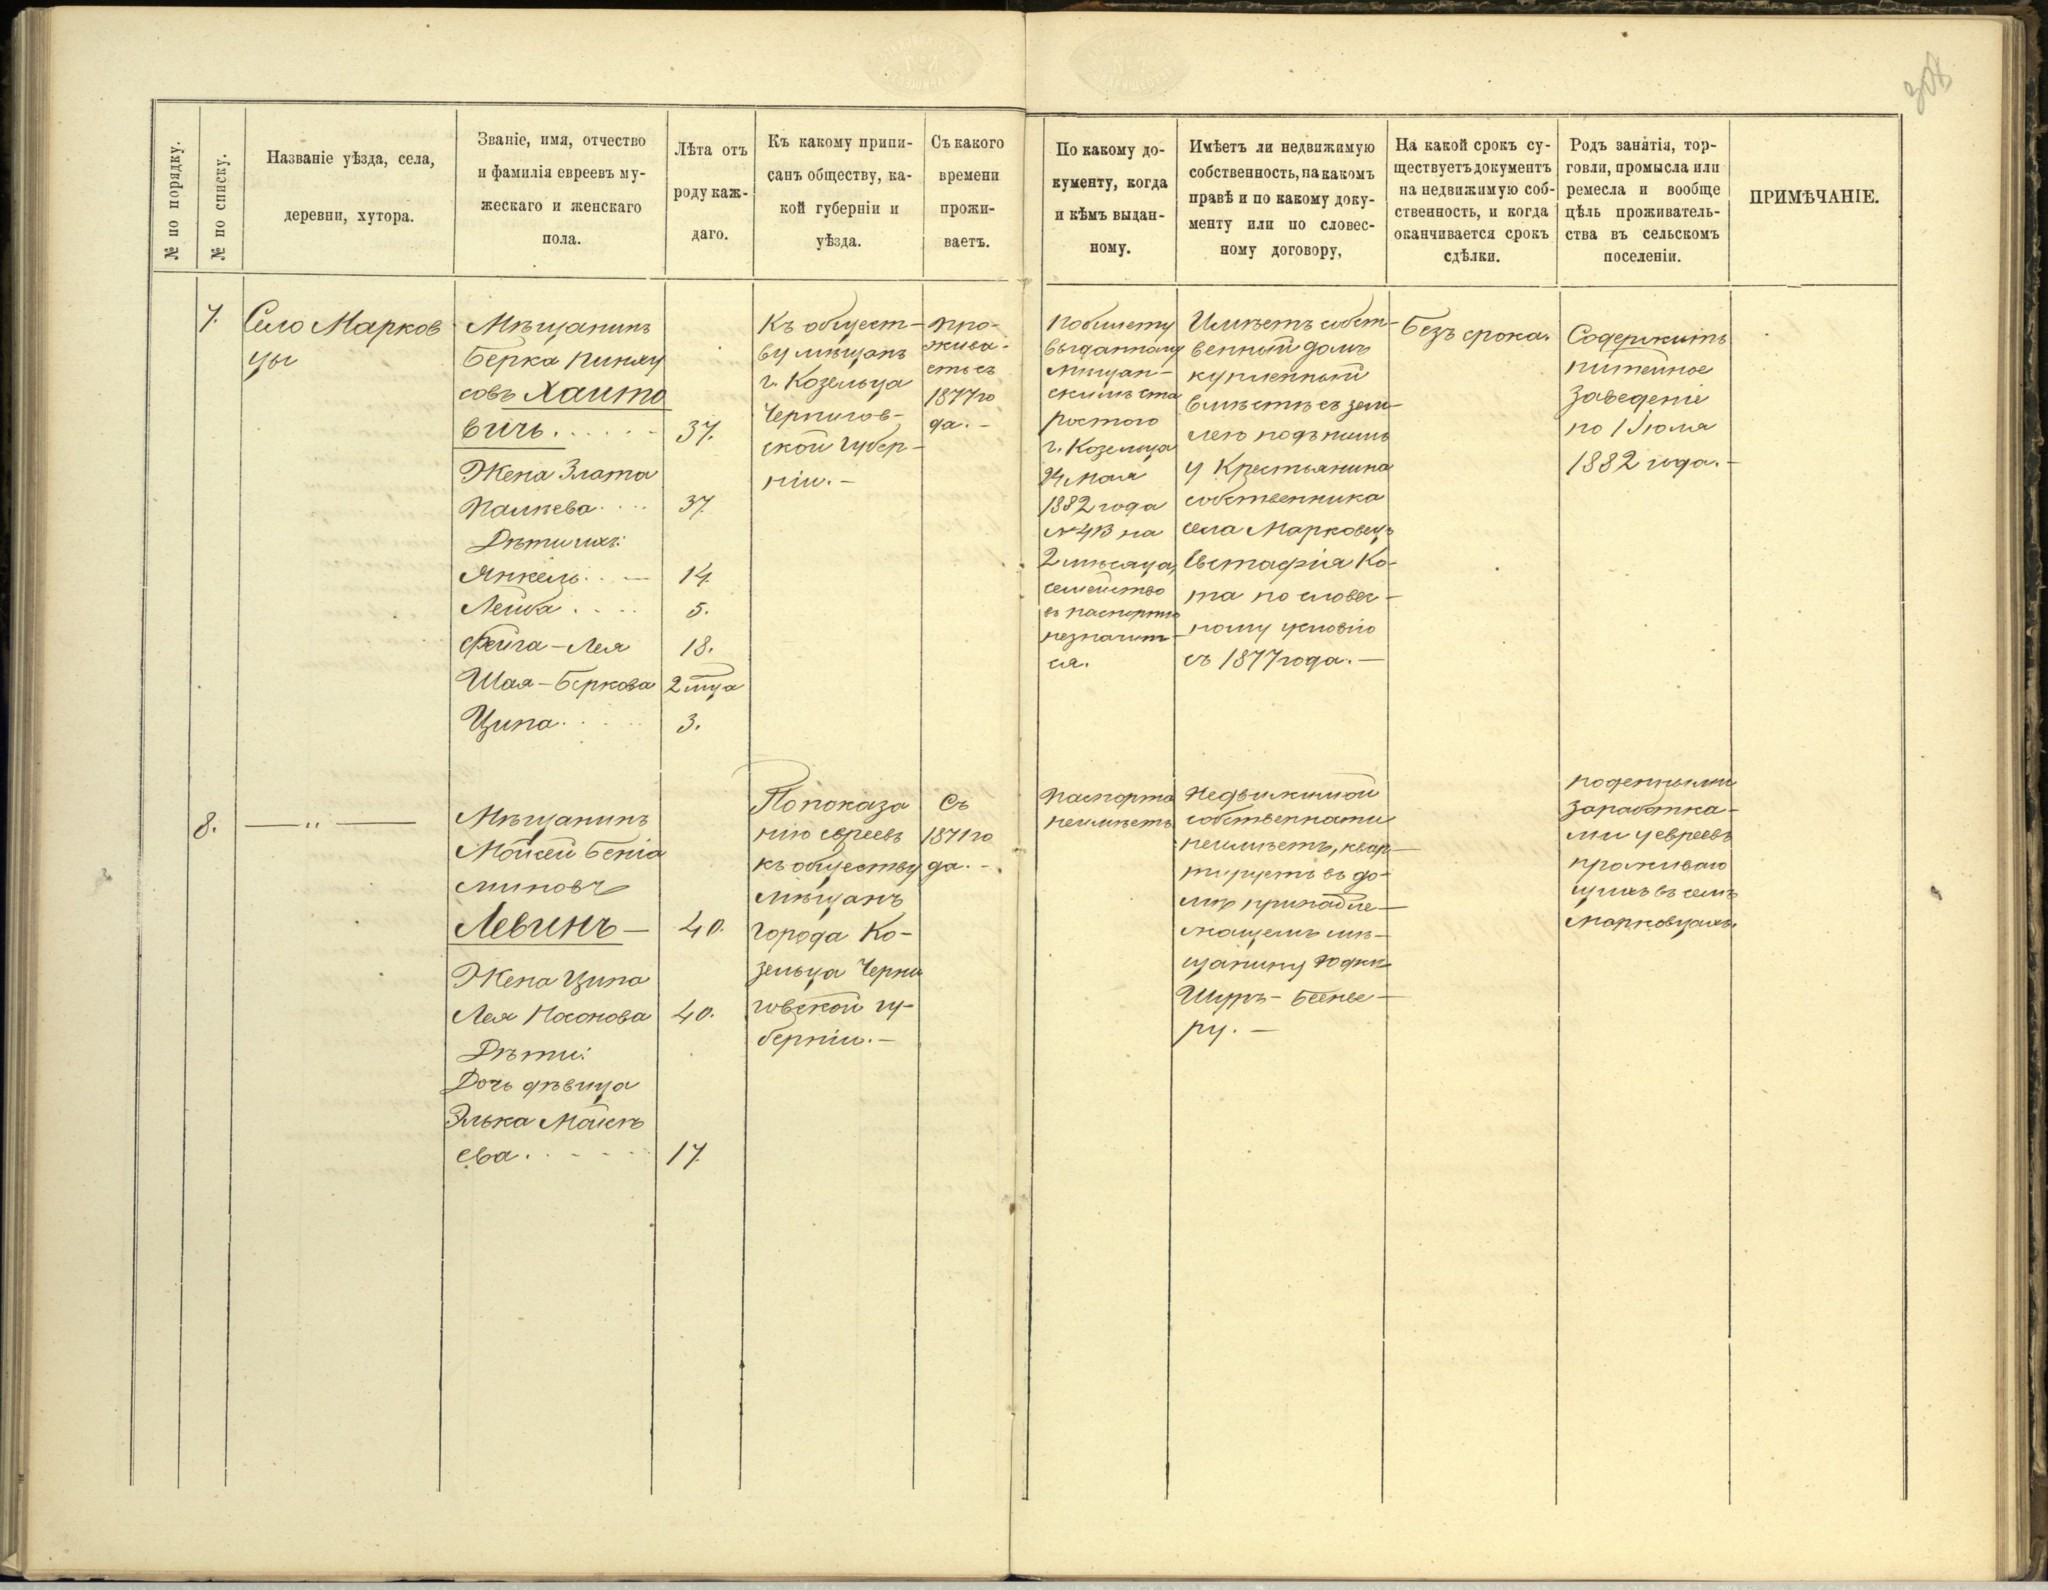 308
№ по порядку.
№ по списку.
Названіе уѣзда, села,
деревни, хутора.
Званіе, имя, отчество
и фамилія евреевъ му-
жескаго и женскаго
пола.
Лѣта отъ
роду каж-
даго.
Къ какому припи-
санъ обществу, ка-
кой губерніи и
уѣзда.
Съ какого
времени
прожи-
ваетъ.
По какому до-
кументу, когда
и кѣмъ выдан-
ному.
Имѣетъ ли недвижимую
собственность, на какомъ
правѣ и по какому доку-
менту или по словес-
ному договору,
На какой срокъ су-
ществуетъ документъ
на недвижимую соб-
ственность, и когда
оканчивается срокъ
сдѣлки.
Родъ занятія, тор-
говли, промысла или
ремесла и вообще
цѣль проживатель-
ства въ сельскомъ
поселеніи.
ПРИМѢЧАНІЕ.
7.
Село Марков
цы
Мѣщанинъ
Берка Пинху
совъ Хаито
вичь.
37.
Жена Злата
37.
Дѣти ихъ:
Янкель
14
Лейба
5.
Фейга-Лея
18.
Шая-Беркова
2 м-ца
Ципа
3.
Къ общест-
ву мѣщанъ
г. Козельца
Чернигов-
ской губер-
ніи.-
Про-
жива-
етъ съ
1877 го
да.-
По билету
выданному
мѣщан-
скимъ ста
ростою
г. Козельца
24 Мая
1882 года
№ 413 на
2 мѣсяца,
семейство
въ паспортѣ
незначит-
ся.
Имѣетъ собст-
венный домъ
купленный
вмѣстѣ съ зем-
лею подъ нимъ
у Крестьянина
собственника
села Марковецъ
Евстафія Ко-
та по словес-
ному условію
съ 1877 года.-
Безъ срока.
Содержитъ
питейное
заведеніе
по 1 Іюля
1882 года.-
8.
— " —
Мѣщанинъ
Мойсей Беніа
миновъ
Левинъ-
40.
Жена Ципа
Лея Носонова
40.
Дѣти:
Дочь дѣвица
Элька Моисѣ
ева.
17.
По показа
нію евреевъ
къ обществу
мѣщанъ
города Ко-
зельца Черни
говской гу-
берніи.-
Съ
1871 го
да.-
Паспорта
неимѣетъ
Недвижимой
собственности
неимѣетъ, квар-
тируетъ въ до-
мѣ принадле-
жащемъ мѣ-
щанину Юдки
ру.-
поденными
заработка-
ми у евреевъ
проживаю
щихъ въ селѣ
Марковцахъ.